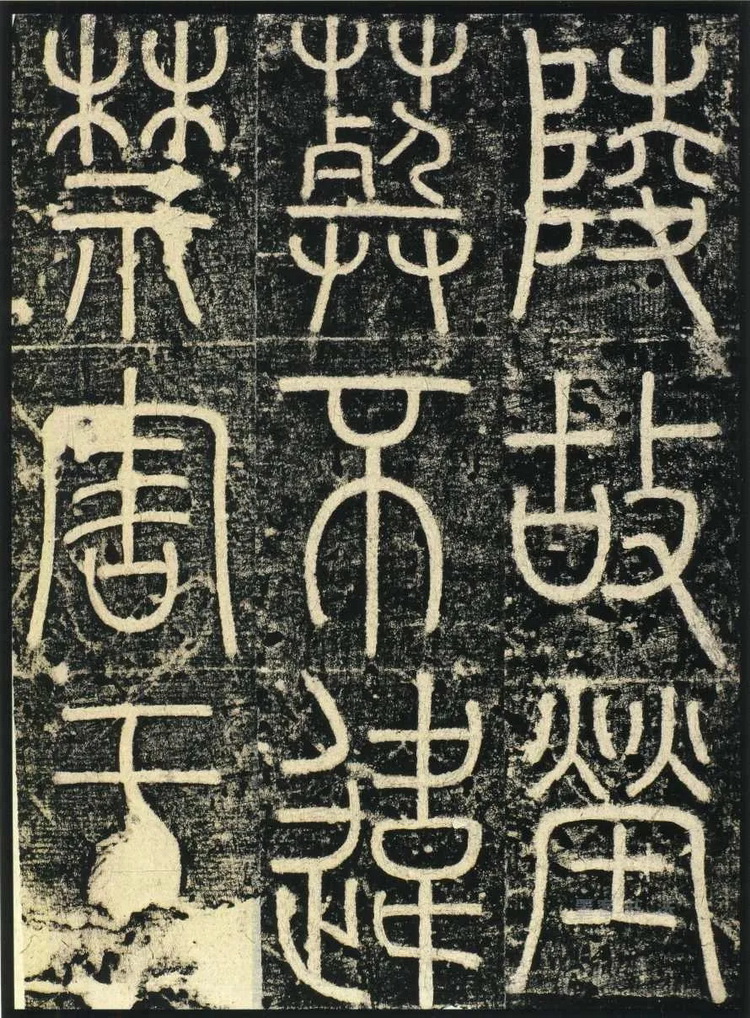 陵故塋
葬不違
禁周于